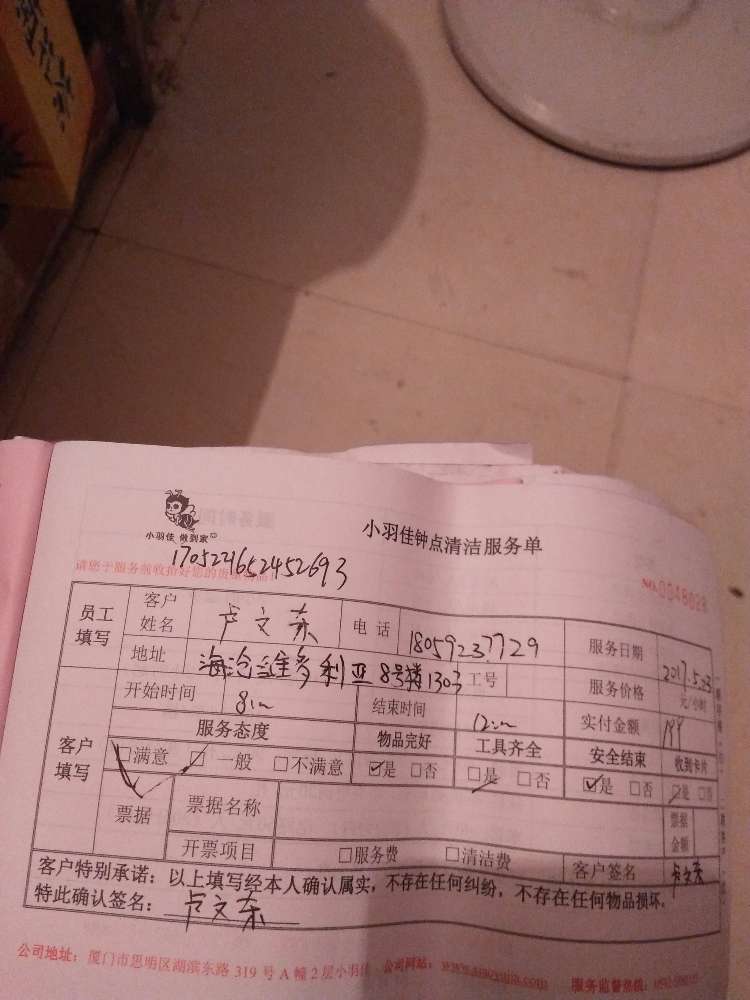 小羽佳 做到家
小羽佳钟点清洁服务单
1705221652452693
请您于服务前收拾好您的贵重物品!
NO.0048029
员工填写
客户姓名 卢文东 电话 18059237729 服务日期 2017.5.23
地址 海沧维多利亚8号楼1303 工号 服务价格 元/小时
开始时间 8:00 结束时间 12:00 实付金额 199
客户填写
服务态度 物品完好 工具齐全 安全结束 收到卡片
□满意 □一般 □不满意 ☑是 □否 ☑是 □否 ☑是 □否 ☑是 □否
票据 票据名称 票据金额
开票项目 □服务费 □清洁费 客户签名 卢文东
客户特别承诺:以上填写经本人确认属实,不存在任何纠纷,不存在任何物品损坏.
特此确认签名: 卢文东
公司地址:厦门市思明区湖滨东路 319 号 A 幢 2 层小羽佳 公司网站: 服务监督热线: